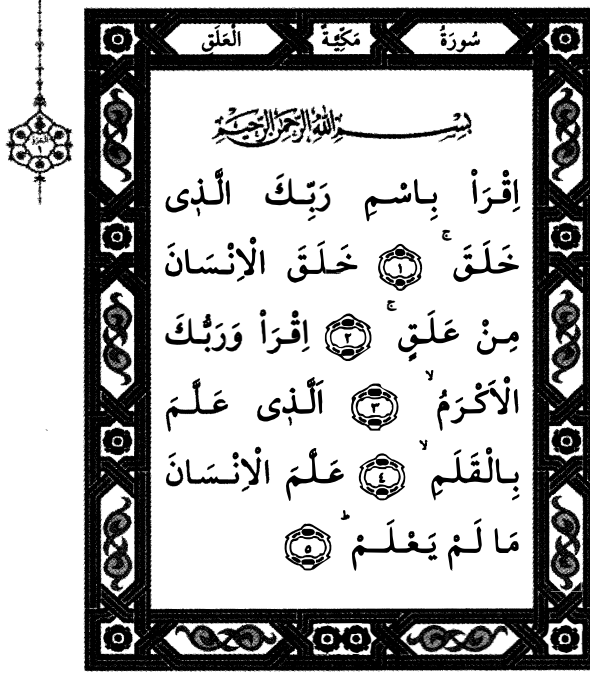 سُورَةُ مَكِّيَّةٌ الْعَلَقِ
بِسْمِ اللّٰهِ الرَّحْمٰنِ الرَّحِيمِ
اِقْرَاْ بِاسْمِ رَبِّكَ الَّذٖى
خَلَقَۚ ﴿١﴾ خَلَقَ الْاِنْسَانَ
مِنْ عَلَقٍۚ ﴿٢﴾ اِقْرَاْ وَرَبُّكَ
الْاَكْرَمُۙ ﴿٣﴾ اَلَّذٖى عَلَّمَ
بِالْقَلَمِۙ ﴿٤﴾ عَلَّمَ الْاِنْسَانَ
مَا لَمْ يَعْلَمْؕ ﴿٥﴾